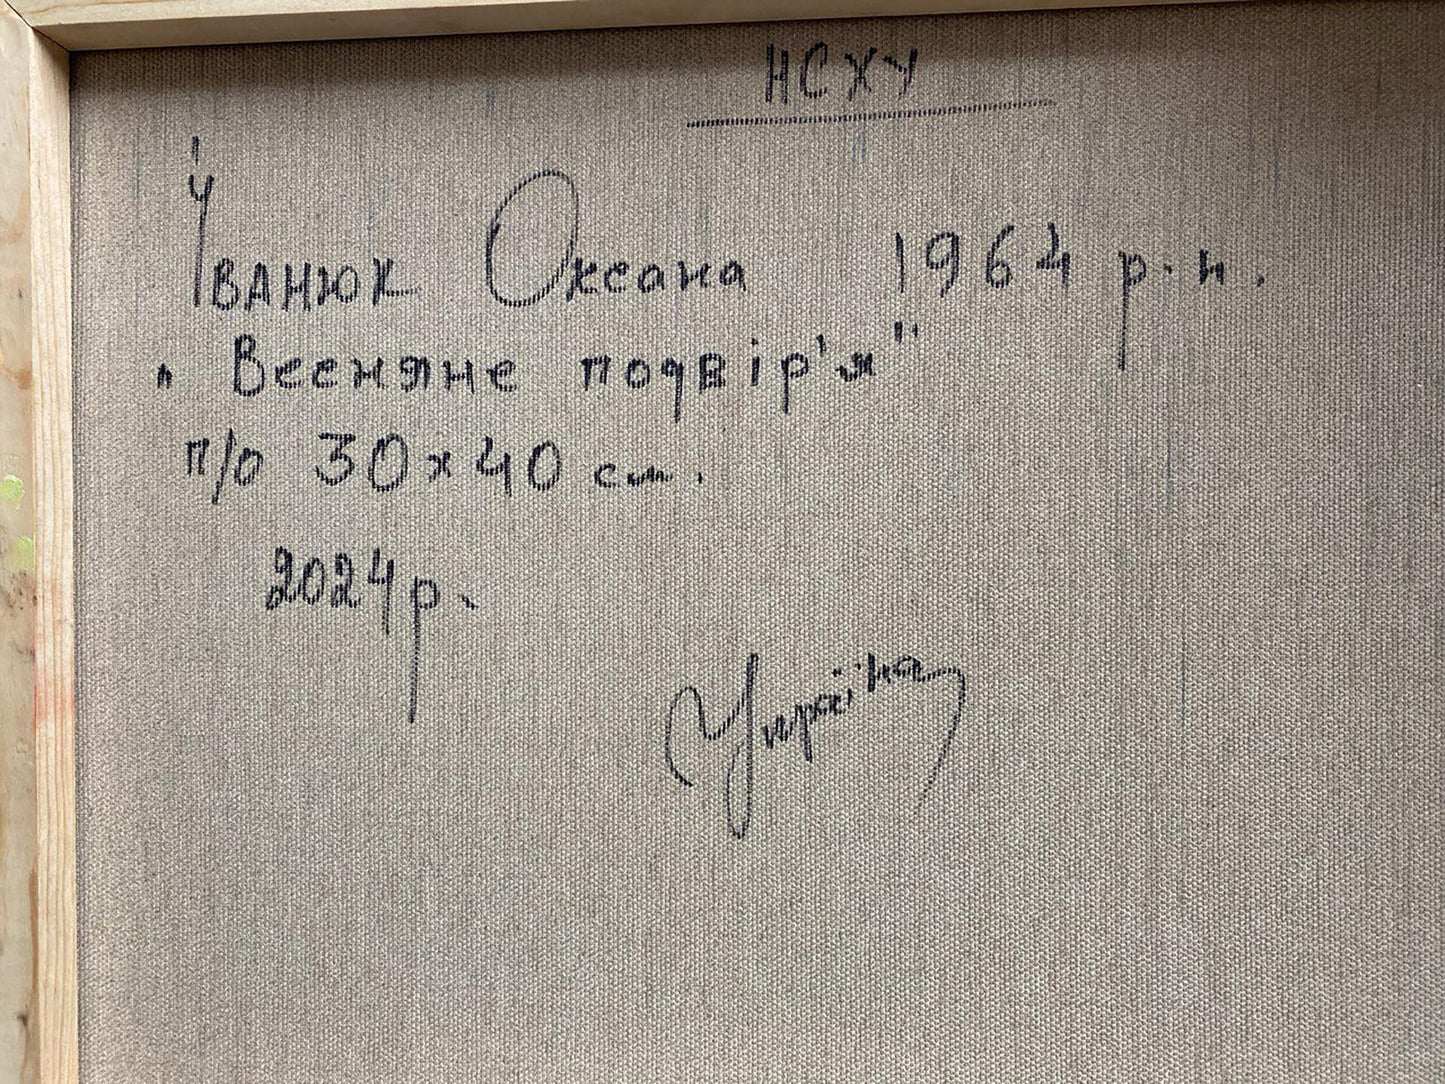 НСХУ
Іванюк Оксана 1964 р.н.
"Весняне подвір'я"
п/о 30х40 см.
2024р.
Україна